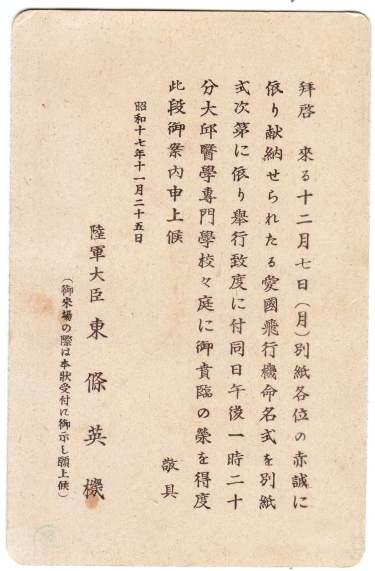 拜啓　來る十二月七日(月)別紙各位の赤誠に
依り献納せられたる愛國飛行機命名式を別紙
式次第に依り擧行致度に付同日午後一時二十
分大邱醫學專門學校々庭に御貴臨の榮を得度
此段御案內申上候
敬具
昭和十七年十一月二十五日
陸軍大臣　東條英機
(御來場の際は本狀受付に御示し願上候)